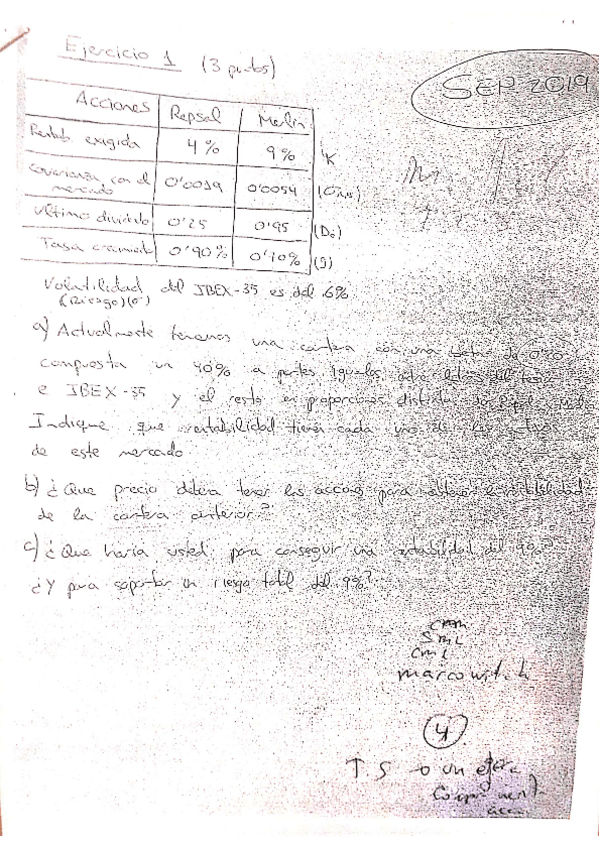 Ejercicio 1 (3 puntos)
SEP 2019
Acciones Repsol Melin
Rentab. exigida 4% 9% K
Covarianza con el mercado 0'0019 0'0054
Último dividendo 0'25 0'95 (D0)
Tasa 0'90% 0'70% (g)
Volatilidad del IBEX-35 es del 6%
(Riesgo)(σ)
a) Actualmente tenemos una cartera con una beta de
compuesta un 40% a partes iguales
e IBEX-35 y el resto en proporciones
Indique que rentabilidad tienen cada uno de los
de este mercado
b) ¿Que precio deben tener las acciones para obtener la rentabilidad
de la cartera anterior?
c) ¿Que haría usted para conseguir una rentabilidad del 9%?
¿Y para soportar un riesgo total del 9%?
SML
CML
marcowitch
4
↑ S un